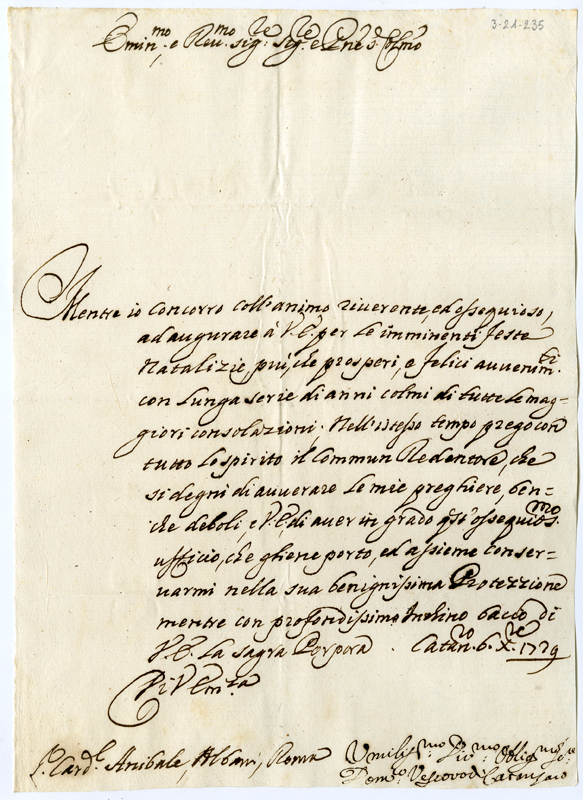 3-21-235
Emin.mo e Reu.mo sig.re sig.re e Pne s. Colmo
Mentre io concorro coll'animo riverente, ed ossequioso,
ad augurare à V.E. per le imminenti feste
Natalizie, più, che prosperi, e felici auuenim.ti
con lunga serie di anni colmi di tutte le mag=
giori consolazioni. Nell'istesso tempo prego con
tutto lo spirito il Commun Redentore, che
si degni di auuerare le mie preghiere, ben=
che deboli e V.E. di auer in grado q.to ossequios.mo
ufficio, che gliene porto, ed assieme conser=
uarmi nella sua benignissima Protezzione
mentre con profondissimo Inchino bacio di
V.E. la sagra Porpora. Catan.ro 6. X.re 1729
Di V. Em.za
S.r Card.l Anibale Albani, Roma
Umiliss.mo Diu.mo Obblig.mo S.re
Dom.co Vescovo di Catanzaro